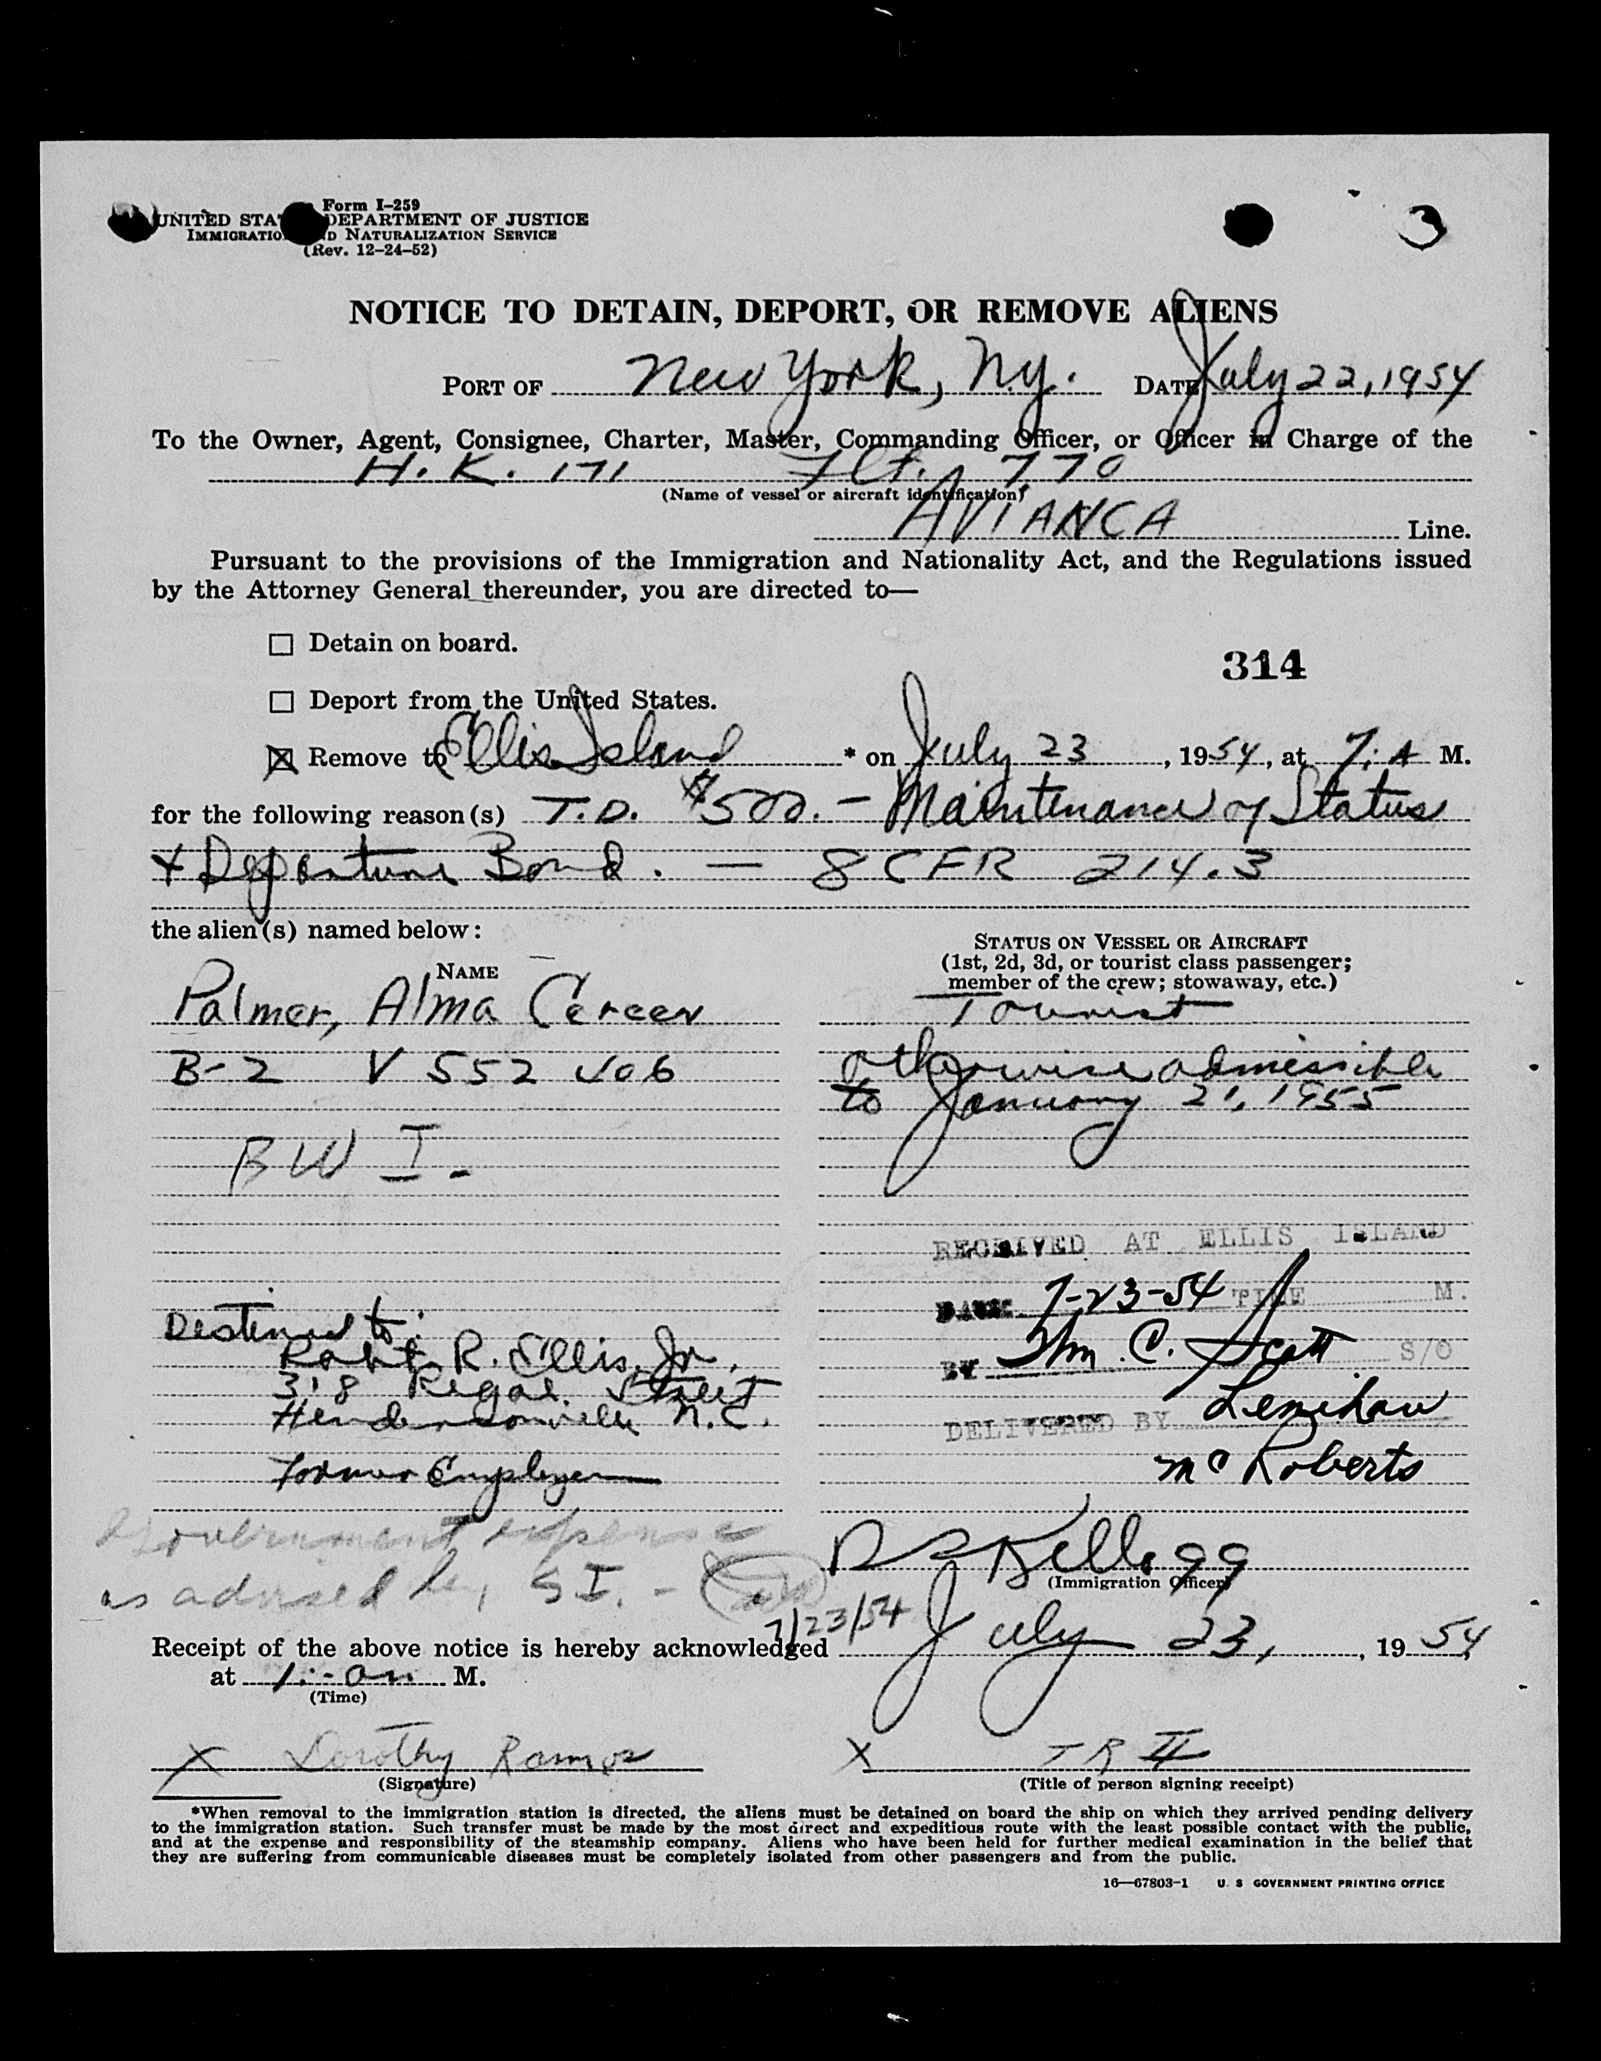 3
Form I-259
UNITED STA DEPARTMENT OF JUSTICE
IMMIGRATIO D NATURALIZATION SERVICE
(Rev. 12-24-52)
NOTICE TO DETAIN, DEPORT, OR REMOVE ALIENS
PORT OF New York, N.Y. DATE July 22, 1954
To the Owner, Agent, Consignee, Charter, Master, Commanding Officer, or Officer in Charge of the
H.K. 171 Flt. 770
(Name of vessel or aircraft identification)
AVIANCA Line.
Pursuant to the provisions of the Immigration and Nationality Act, and the Regulations issued
by the Attorney General thereunder, you are directed to—
☐ Detain on board.
314
☐ Deport from the United States.
☒ Remove to Ellis Island * on July 23, 1954, at 7:A M.
for the following reason(s) T.D. $500. - Maintenance of Status
+ Departure Bond. — 8 CFR 214.3
the alien(s) named below:
NAME
STATUS ON VESSEL OR AIRCRAFT
(1st, 2d, 3d, or tourist class passenger;
member of the crew; stowaway, etc.)
Palmer, Alma
B-2 V 552
BWI-
Tourist
otherwise admissible
to January 21, 1955
RECEIVED AT ELLIS ISLAND
DATE 7-23-54 TIME M.
BY Wm. C. Scott S/O
DELIVERED BY
McRoberts
Destined to:
Robt R. Ellis, Jr.
318 Regal Street
Hendersonville N.C.
Former Employer
Government expense
as advised by SI. -
7/23/54
Kellogg
(Immigration Officer)
Receipt of the above notice is hereby acknowledged July 23, 1954
at 1:- am M.
(Time)
X Dorothy Ramos
(Signature)
X TR II
(Title of person signing receipt)
*When removal to the immigration station is directed, the aliens must be detained on board the ship on which they arrived pending delivery
to the immigration station. Such transfer must be made by the most direct and expeditious route with the least possible contact with the public,
and at the expense and responsibility of the steamship company. Aliens who have been held for further medical examination in the belief that
they are suffering from communicable diseases must be completely isolated from other passengers and from the public.
16—67803-1 U. S GOVERNMENT PRINTING OFFICE